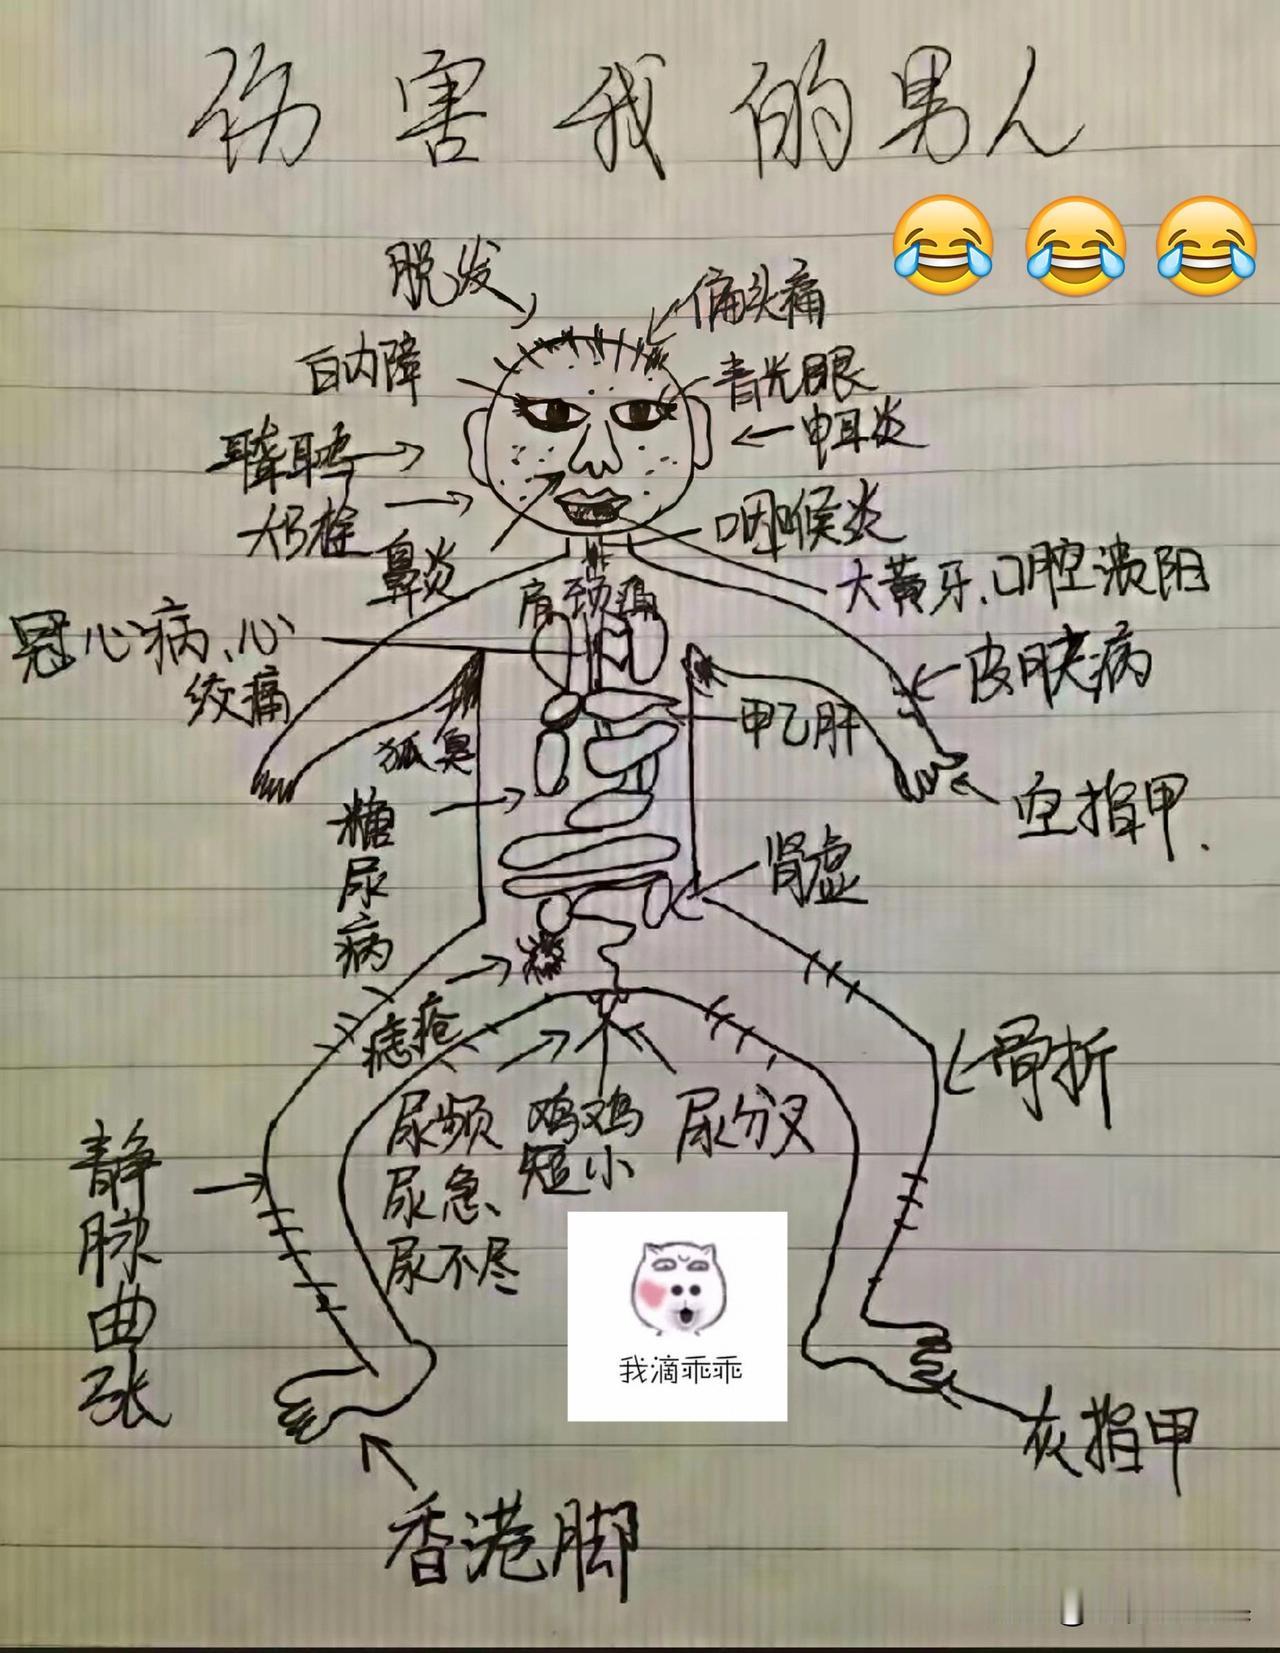 伤害我的男人
脱发
偏头痛
白内障
青光眼
耳聋耳鸣
中耳炎
大邦栓
鼻炎
咽喉炎
大黄牙、口腔溃阳
肩颈
冠心病、心
绞痛
皮肤病
狐臭
甲乙肝
空指甲.
糖尿病
肾虚
痣疮
骨折
尿频
尿急、
尿不尽
鸡鸡
短小
尿分叉
静脉曲张
我滴乖乖
灰指甲
香港脚